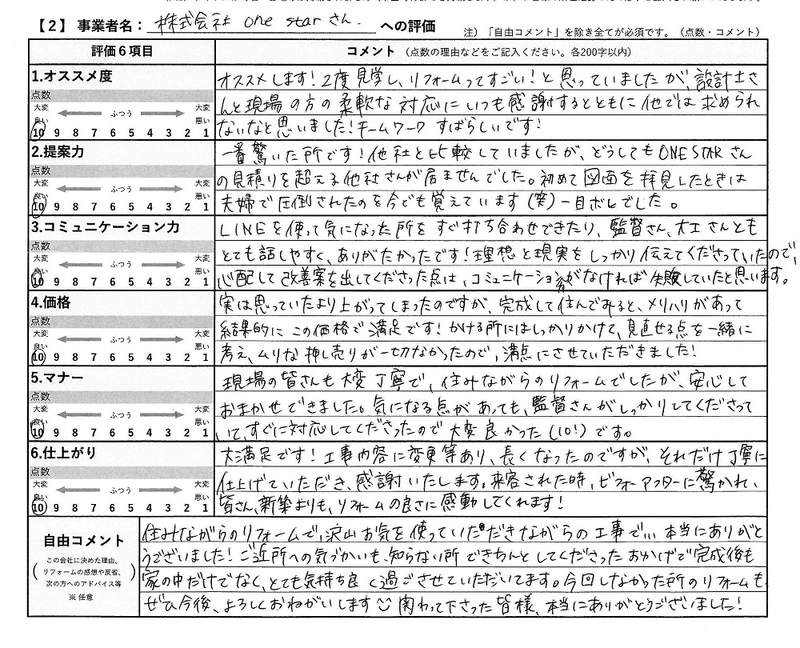 【2】 事業者名： 株式会社 one starさん への評価
注）「自由コメント」を除き全てが必須です。（点数・コメント）
評価6項目
コメント （点数の理由などをご記入ください。各200字以内）
1.オススメ度
点数
大変良い ふつう 大変悪い
10 9 8 7 6 5 4 3 2 1
オススメします！2度見学し、リフォームってすごい！と思っていましたが、設計士さ
んと現場の方の柔軟な対応にいつも感謝するとともに他では求められ
ないなと思いました！チームワークすばらしいです！
2.提案力
点数
大変良い ふつう 大変悪い
10 9 8 7 6 5 4 3 2 1
一番驚いた所です！他社と比較していましたが、どうしてもONE STARさん
の見積りを超える他社さんが居ませんでした。初めて図面を拝見したときは
夫婦で圧倒されたのを今でも覚えています（笑）一目ボレでした。
3.コミュニケーション力
点数
大変良い ふつう 大変悪い
10 9 8 7 6 5 4 3 2 1
LINEを使って気になった所をすぐ打ち合わせできたり、監督さん、大工さんとも
とても話しやすく、ありがたかったです！理想と現実をしっかり伝えてくださっていたので、
心配して改善案を出してくださった点は、コミュニケーション力がなければ失敗していたと思います。
4.価格
点数
大変良い ふつう 大変悪い
10 9 8 7 6 5 4 3 2 1
実は思っていたより上がってしまったのですが、完成して住んでみると、メリハリがあって
結果的にこの価格で満足です！かける所にはしっかりかけて、見直せる点を一緒に
考え、ムリな押し売りが一切なかったので、満点にさせていただきました！
5.マナー
点数
大変良い ふつう 大変悪い
10 9 8 7 6 5 4 3 2 1
現場の皆さんも大変丁寧で、住みながらのリフォームでしたが、安心して
おまかせできました。気になる点があっても、監督さんがしっかりしてくださって
いて、すぐに対応してくださったので大変良かった（10！）です。
6.仕上がり
点数
大変良い ふつう 大変悪い
10 9 8 7 6 5 4 3 2 1
大満足です！工事内容に変更等あり、長くなったのですが、それだけ丁寧に
仕上げていただき、感謝いたします。来客された時、ビフォーアフターに驚かれ、
皆さん、新築よりも、リフォームの良さに感動してくれます！
自由コメント
（この会社に決めた理由、
リフォームの感想や反省、
次の方へのアドバイス等）
※ 任意
住みながらのリフォームで、沢山お気を使っていただきながらの工事で…本当にありがと
うございました！ご近所への気づかいも、知らない所できちんとしてくださったおかげで完成後も
家の中だけでなく、とても気持ち良く過ごさせていただいてます。今回しなかった所のリフォームも、
ぜひ今後、よろしくおねがいします☺ 関わって下さった皆様、本当にありがとうございました！